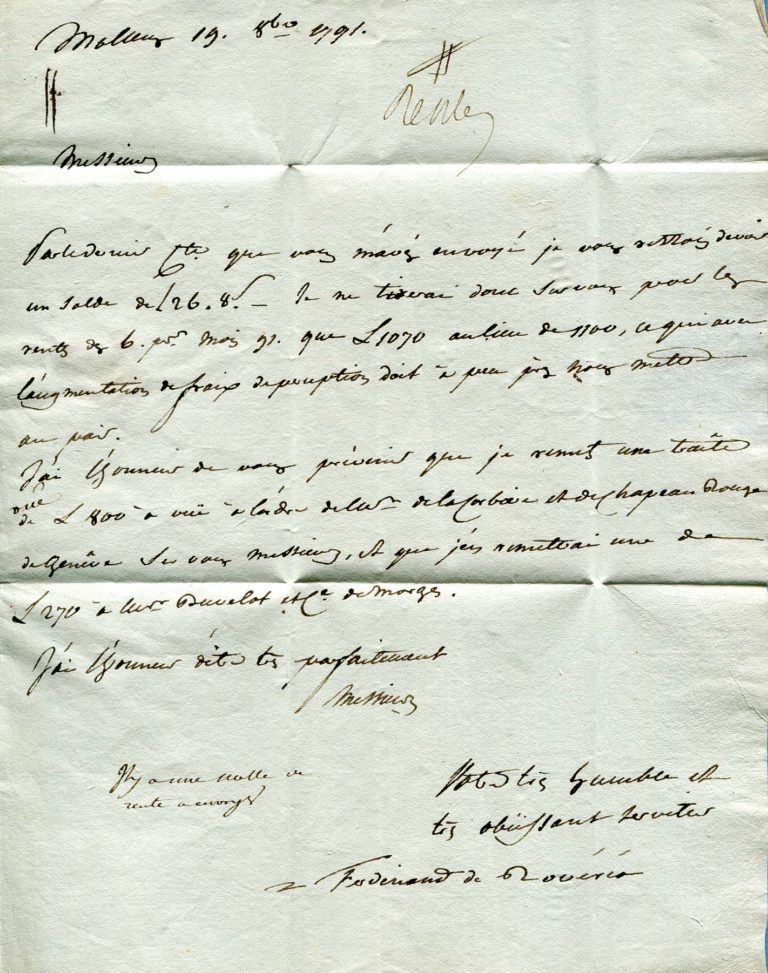 19. 8bre 1791.
Messieurs
Par le dernier Cte que vous m'avés envoyé je vous restois devoir
un solde de L 26. 8 s. — Je ne tirerai donc sur vous pour les
rentes des 6. prs mois 91. que L 1070 au lieu de 1100, ce qui avec
l'augmentation de fraix de perception doit à peu près nous mettre
au pair.
J'ai l'honneur de vous prévenir que je remets une traite
de L 800 à vuë à l'ordre de Mrs de la Corbiere et de Chapeau Rouge
de Genêve sur vous Messieurs, et que j'en remettrai une de
L 270 à Mrs Duvelot et Ce de Morges.
J'ai l'honneur d'être très parfaitement
Messieurs
Il y a une notte de
rente a envoyer
Votre très humble et
très obéissant serviteur
Ferdinand de Rovéréa